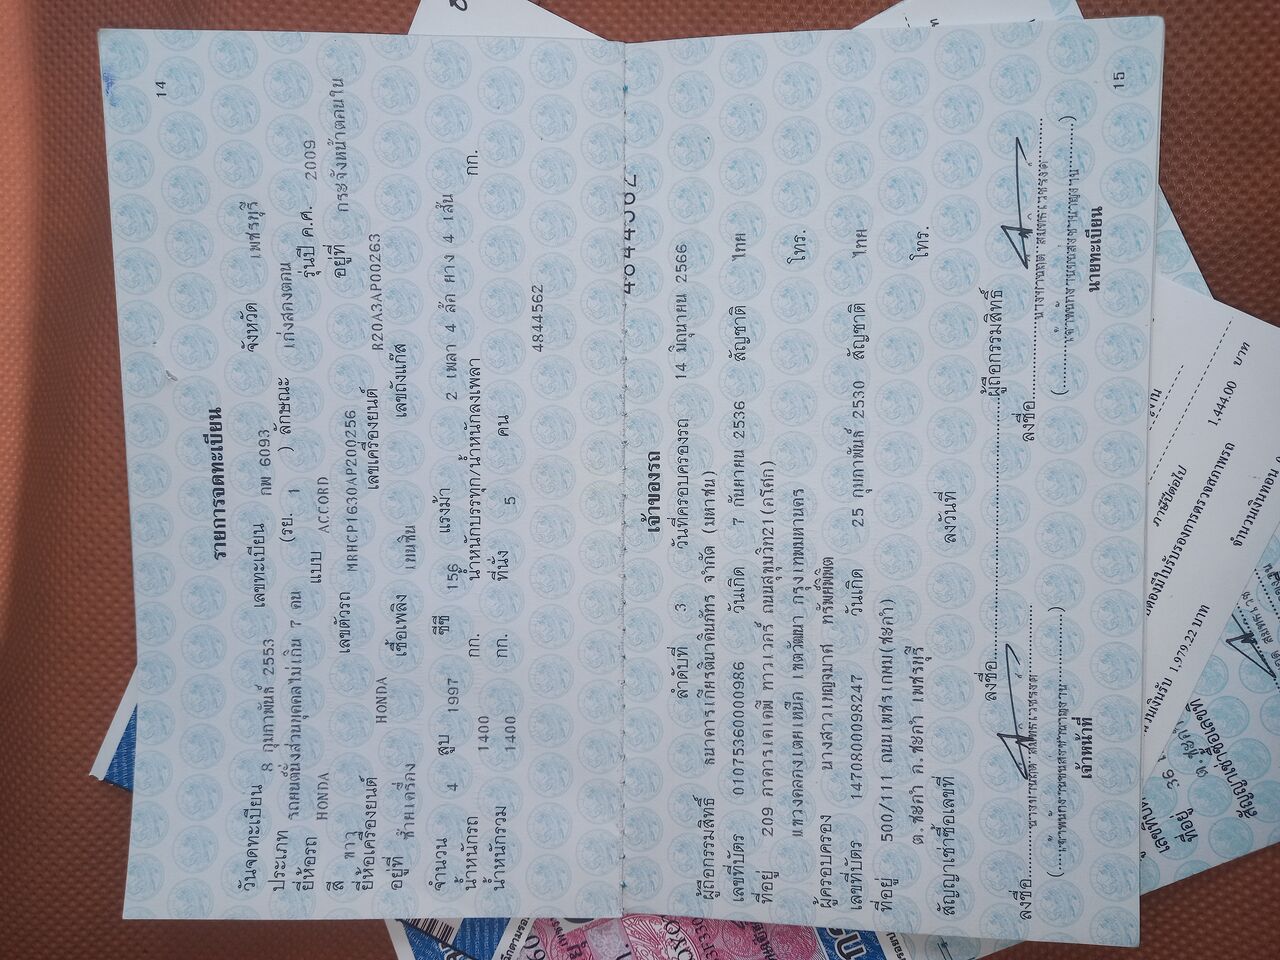 14
รายการจดทะเบียน
วันจดทะเบียน 8 กุมภาพันธ์ 2553 เลขทะเบียน กพ 6093 จังหวัด เพชรบุรี
ประเภท รถยนต์นั่งส่วนบุคคลไม่เกิน 7 คน (รย. 1 ) ลักษณะ เก๋งสองตอน
ยี่ห้อรถ HONDA แบบ ACCORD รุ่นปี ค.ศ. 2009
สี ขาว เลขตัวรถ MRHCP1630AP200256 อยู่ที่ กระจังหน้าตอนใน
ยี่ห้อเครื่องยนต์ HONDA เลขเครื่องยนต์ R20A3AP00263
อยู่ที่ ซ้ายเครื่อง เชื้อเพลิง เบนซิน เลขถังแก๊ส
จำนวน 4 สูบ 1997 ซีซี 156 แรงม้า 2 เพลา 4 ล้อ ยาง 4 เส้น
น้ำหนักรถ 1400 กก. น้ำหนักบรรทุก/น้ำหนักลงเพลา กก.
น้ำหนักรวม 1400 กก. ที่นั่ง 5 คน
4844562
4844562
เจ้าของรถ
ลำดับที่ 3 วันที่ครอบครองรถ 14 มิถุนายน 2566
ผู้ถือกรรมสิทธิ์ ธนาคารเกียรตินาคินภัทร จำกัด (มหาชน)
เลขที่บัตร 0107536000986 วันเกิด 7 กันยายน 2536 สัญชาติ ไทย
ที่อยู่ 209 อาคารเคเคพี ทาวเวอร์ ถนนสุขุมวิท21(อโศก)
แขวงคลองเตยเหนือ เขตวัฒนา กรุงเทพมหานคร โทร.
ผู้ครอบครอง นางสาวเบญจมาศ ทรัพย์พิพิต
เลขที่บัตร 1470800098247 วันเกิด 25 กุมภาพันธ์ 2530 สัญชาติ ไทย
ที่อยู่ 500/111 ถนนเพชรเกษม(ชะอำ)
ต.ชะอำ อ.ชะอำ เพชรบุรี โทร.
สัญญาเช่าซื้อเลขที่ ลงวันที่
ลงชื่อ ผู้ถือกรรมสิทธิ์
ลงชื่อ ลงชื่อ
(เจ้าพนักงานขนส่งชำนาญงาน) (เจ้าพนักงานขนส่งชำนาญงาน)
เจ้าหน้าที่ นายทะเบียน
15
ภาษีปีต่อไป
ต้องมีใบรับรองการตรวจสภาพรถ 1,444.00 บาท
จำนวนเงินรับ 1,979.22 บาท จำนวนเงินทอน
ที่อยู่ 36
สัญญาเช่าซื้อเลขที่